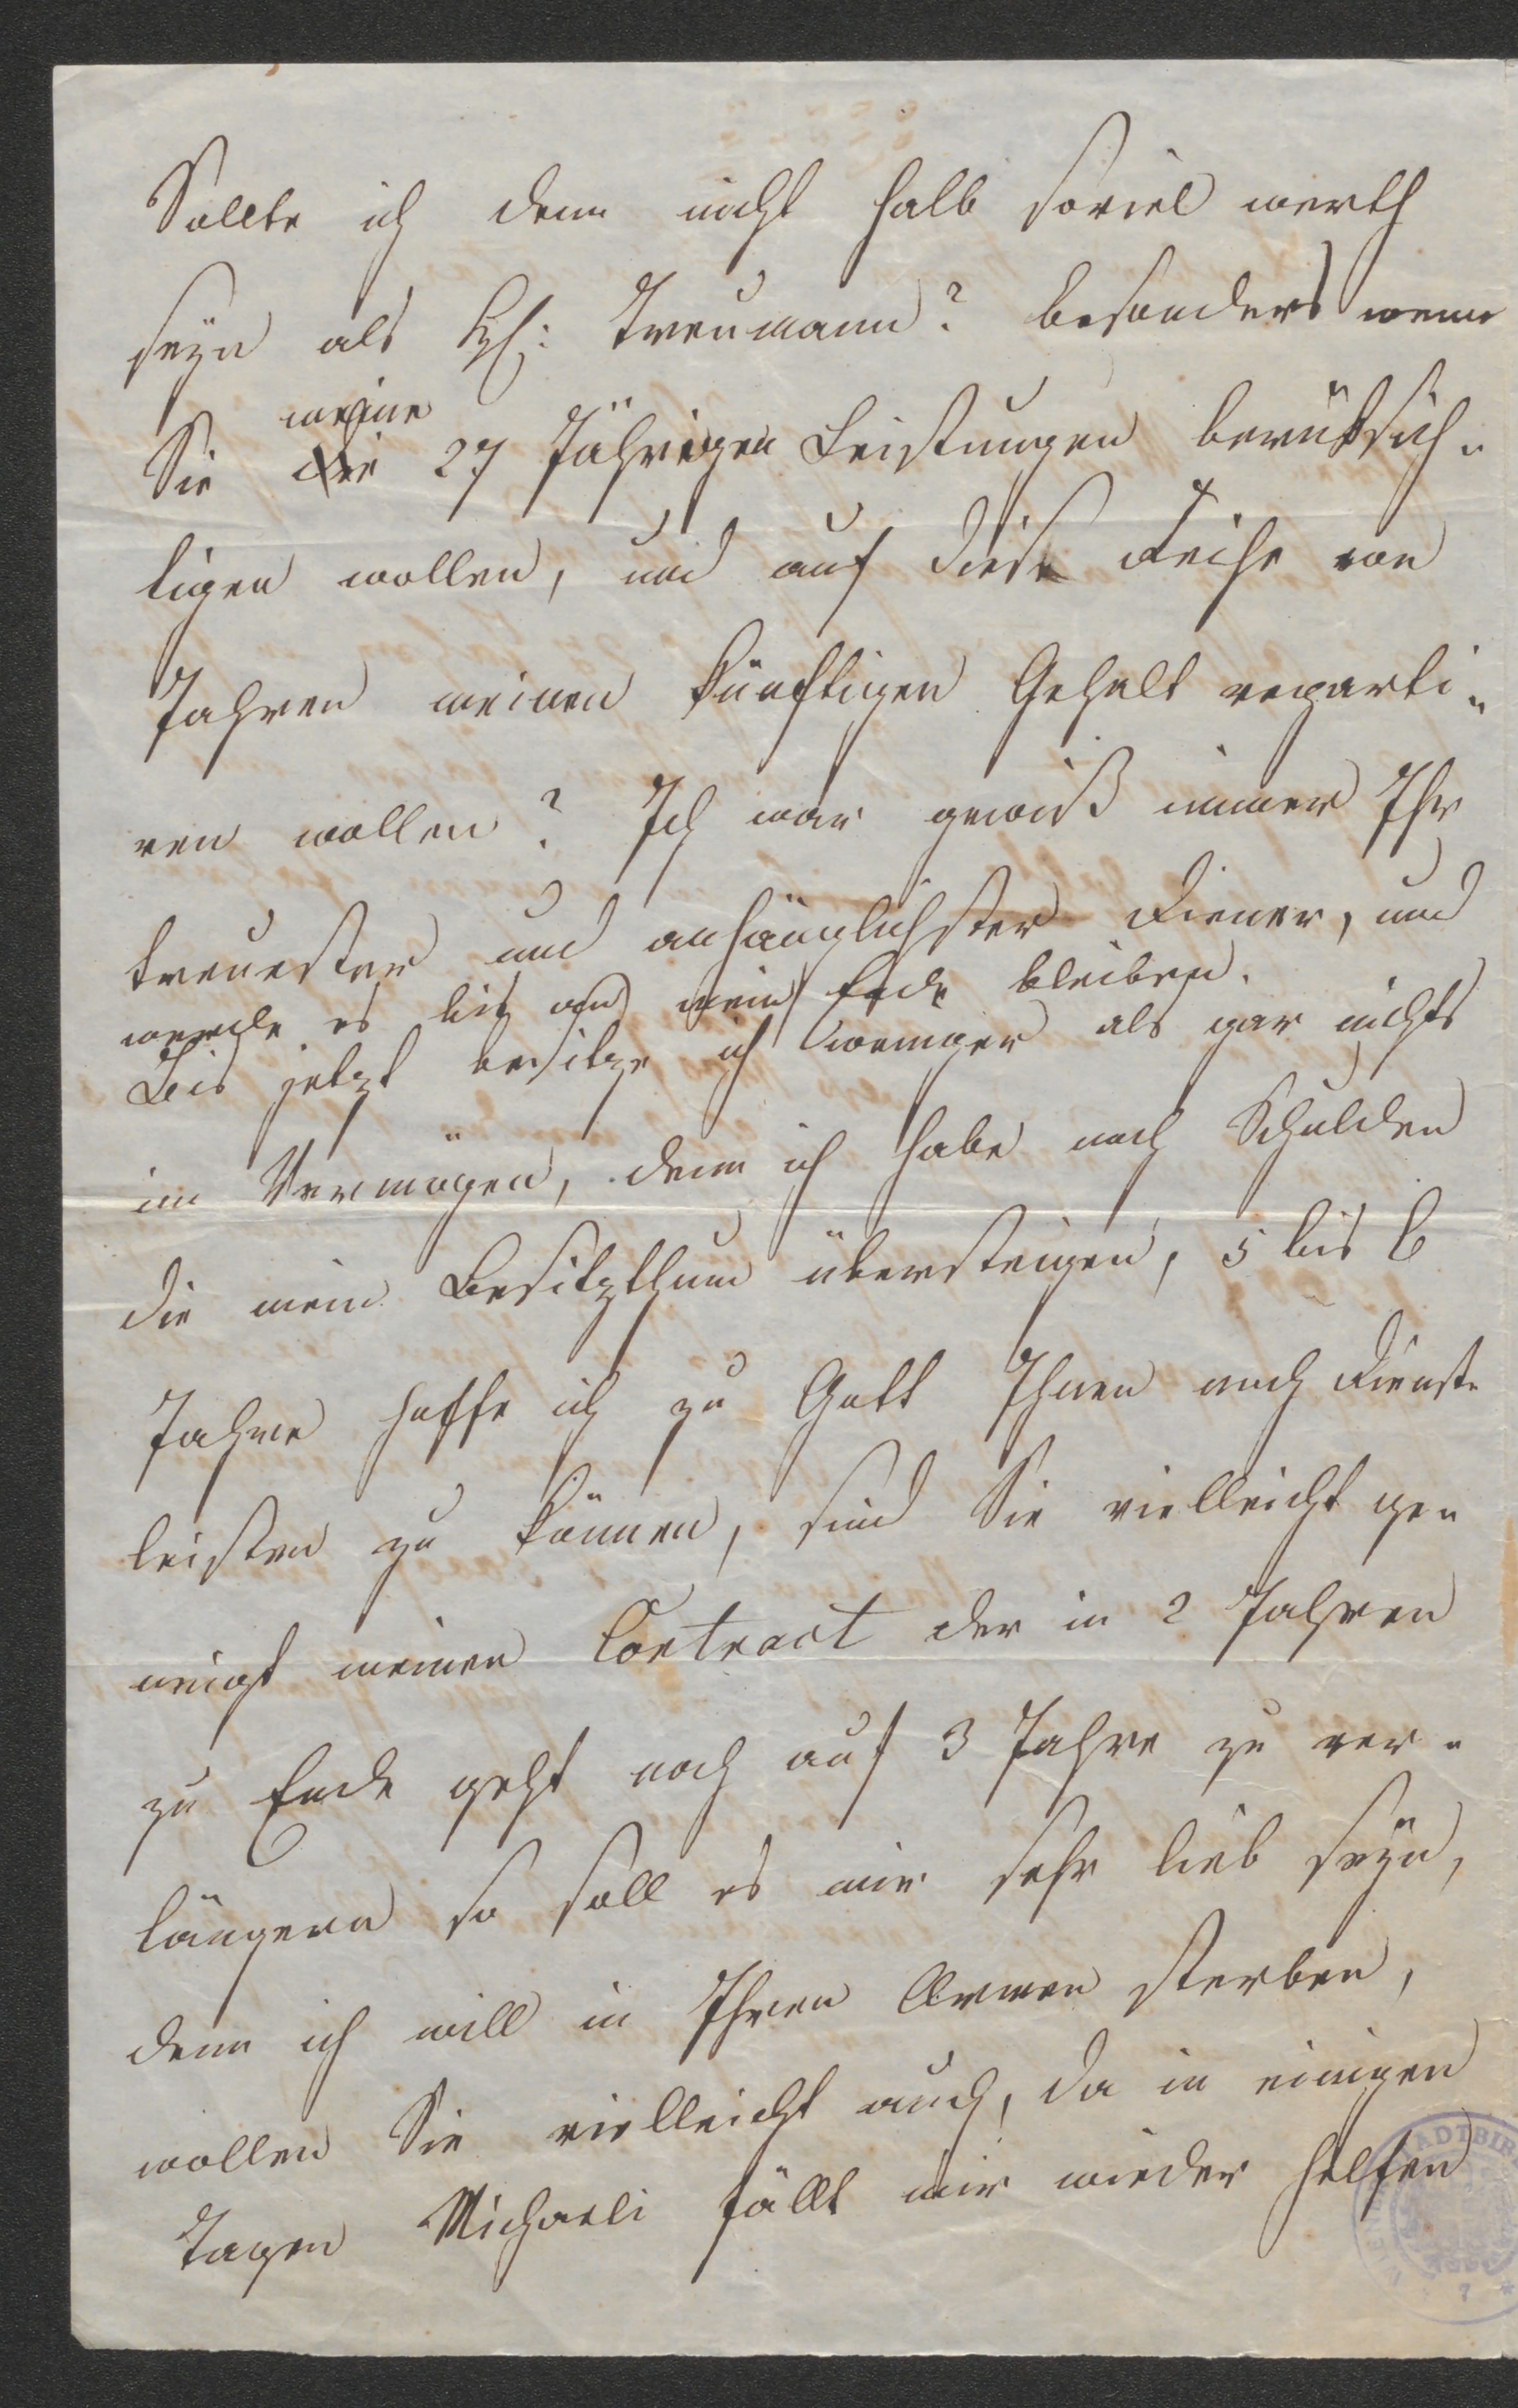 Sollte ich denn nicht halb soviel werth
seyn als H: Treumann? besonders wenn
meine
Sie die 27 Jährigen Leistungen berüksich-
tigen wollen, und auf diese Reihe von
Jahren meinen künftigen Gehalt reparti-
ren wollen? Ich war gewiß immer Ihr
treuester und anhänglichster Diener, und
werde es bis an mein Ende bleiben.
Bis jetzt besitze ich weniger als gar nichts
im Vermögen, denn ich habe noch Schulden
die mein Besitzthum übersteigen, 5 bis 6
Jahre hoffe ich zu Gott Ihnen noch Dienste
leisten zu können, sind Sie vielleicht ge-
neigt meinen Contract der in 2 Jahren
zu Ende geht noch auf 3 Jahre zu ver-
längern so soll es mir sehr lieb seyn,
denn ich will in Ihren Armen sterben,
wollen Sie vielleicht auch, da in einigen
Tagen Michaeli fällt mir wieder helfen